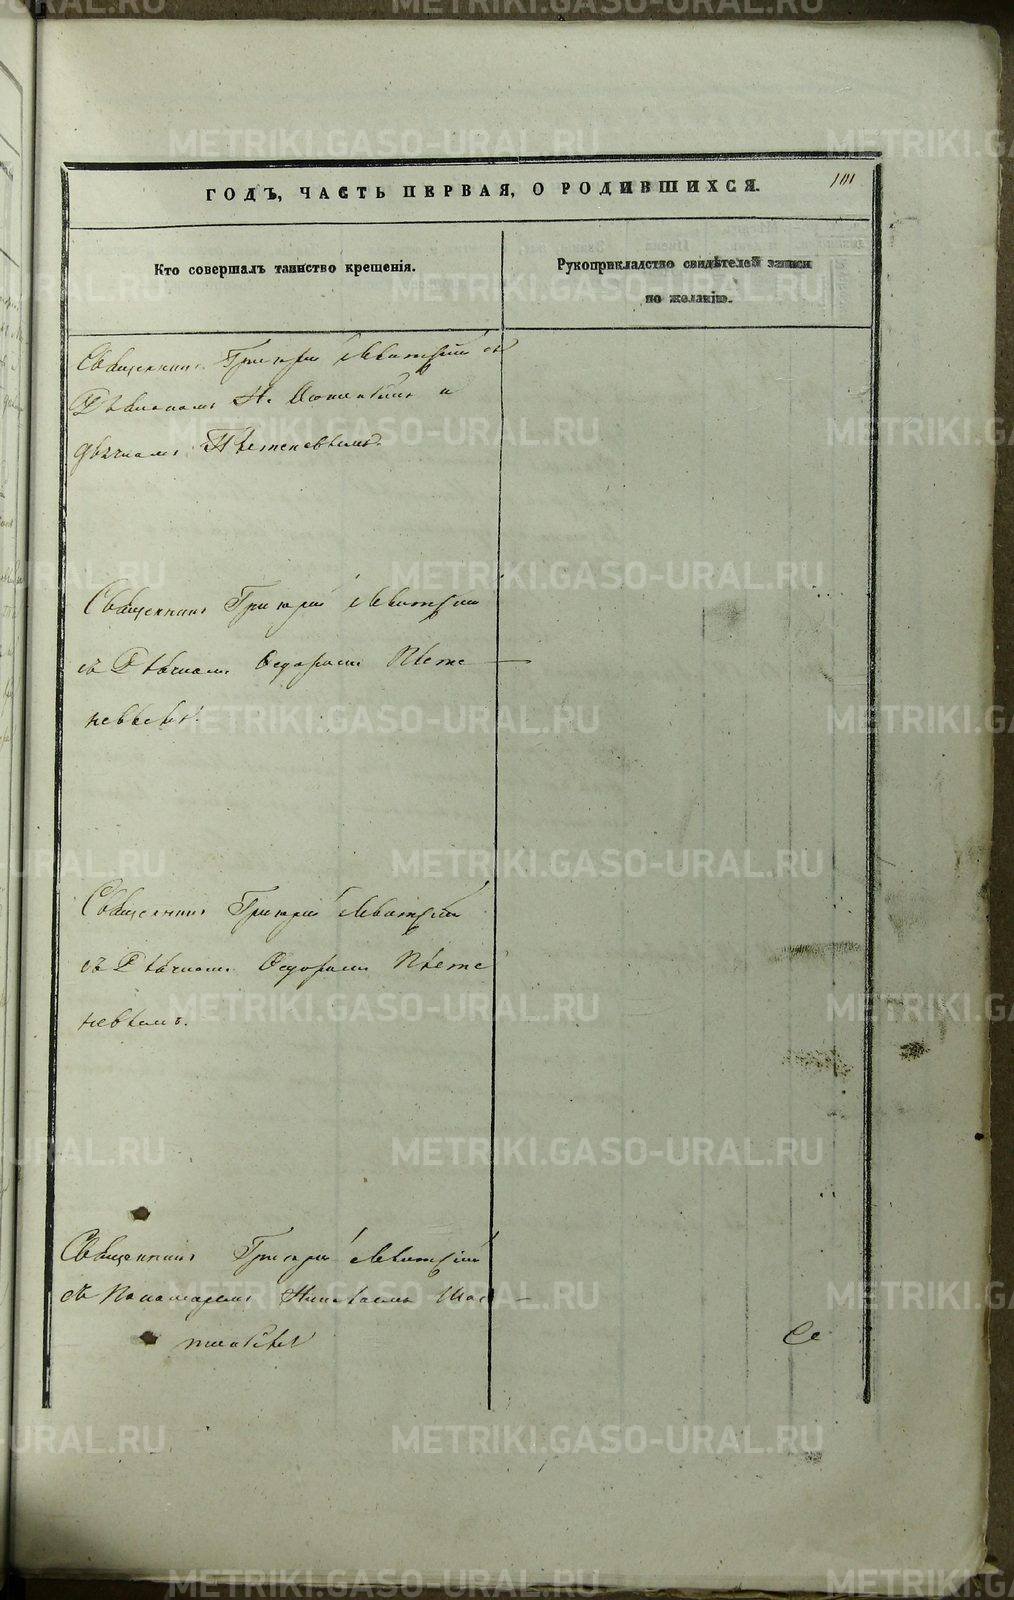 101
ГОДЪ, ЧАСТЬ ПЕРВАЯ, О РОДИВШИХСЯ.
Кто совершалъ таинство крещенія.
Рукоприкладство свидѣтелей записи
по желанію.
Священникъ Григорій Левитскій съ
и
дьячкомъ
Священникъ Григорій Левитскій
съ Дьячкомъ Федоромъ Плете
невымъ.
Священникъ Григорій Левитскій
съ Дьячкомъ Федоромъ Плете
невымъ.
Священникъ Григорій Левитскій
съ Пономаремъ Николаемъ
METRIKI.GASO-URAL.RU